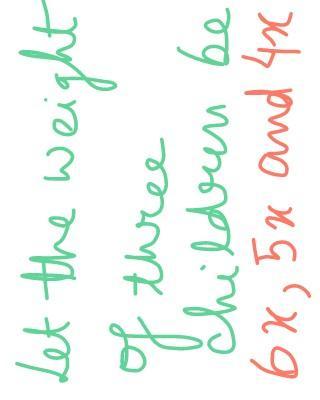 let the weight
of three
children be
6x, 5x and 4x